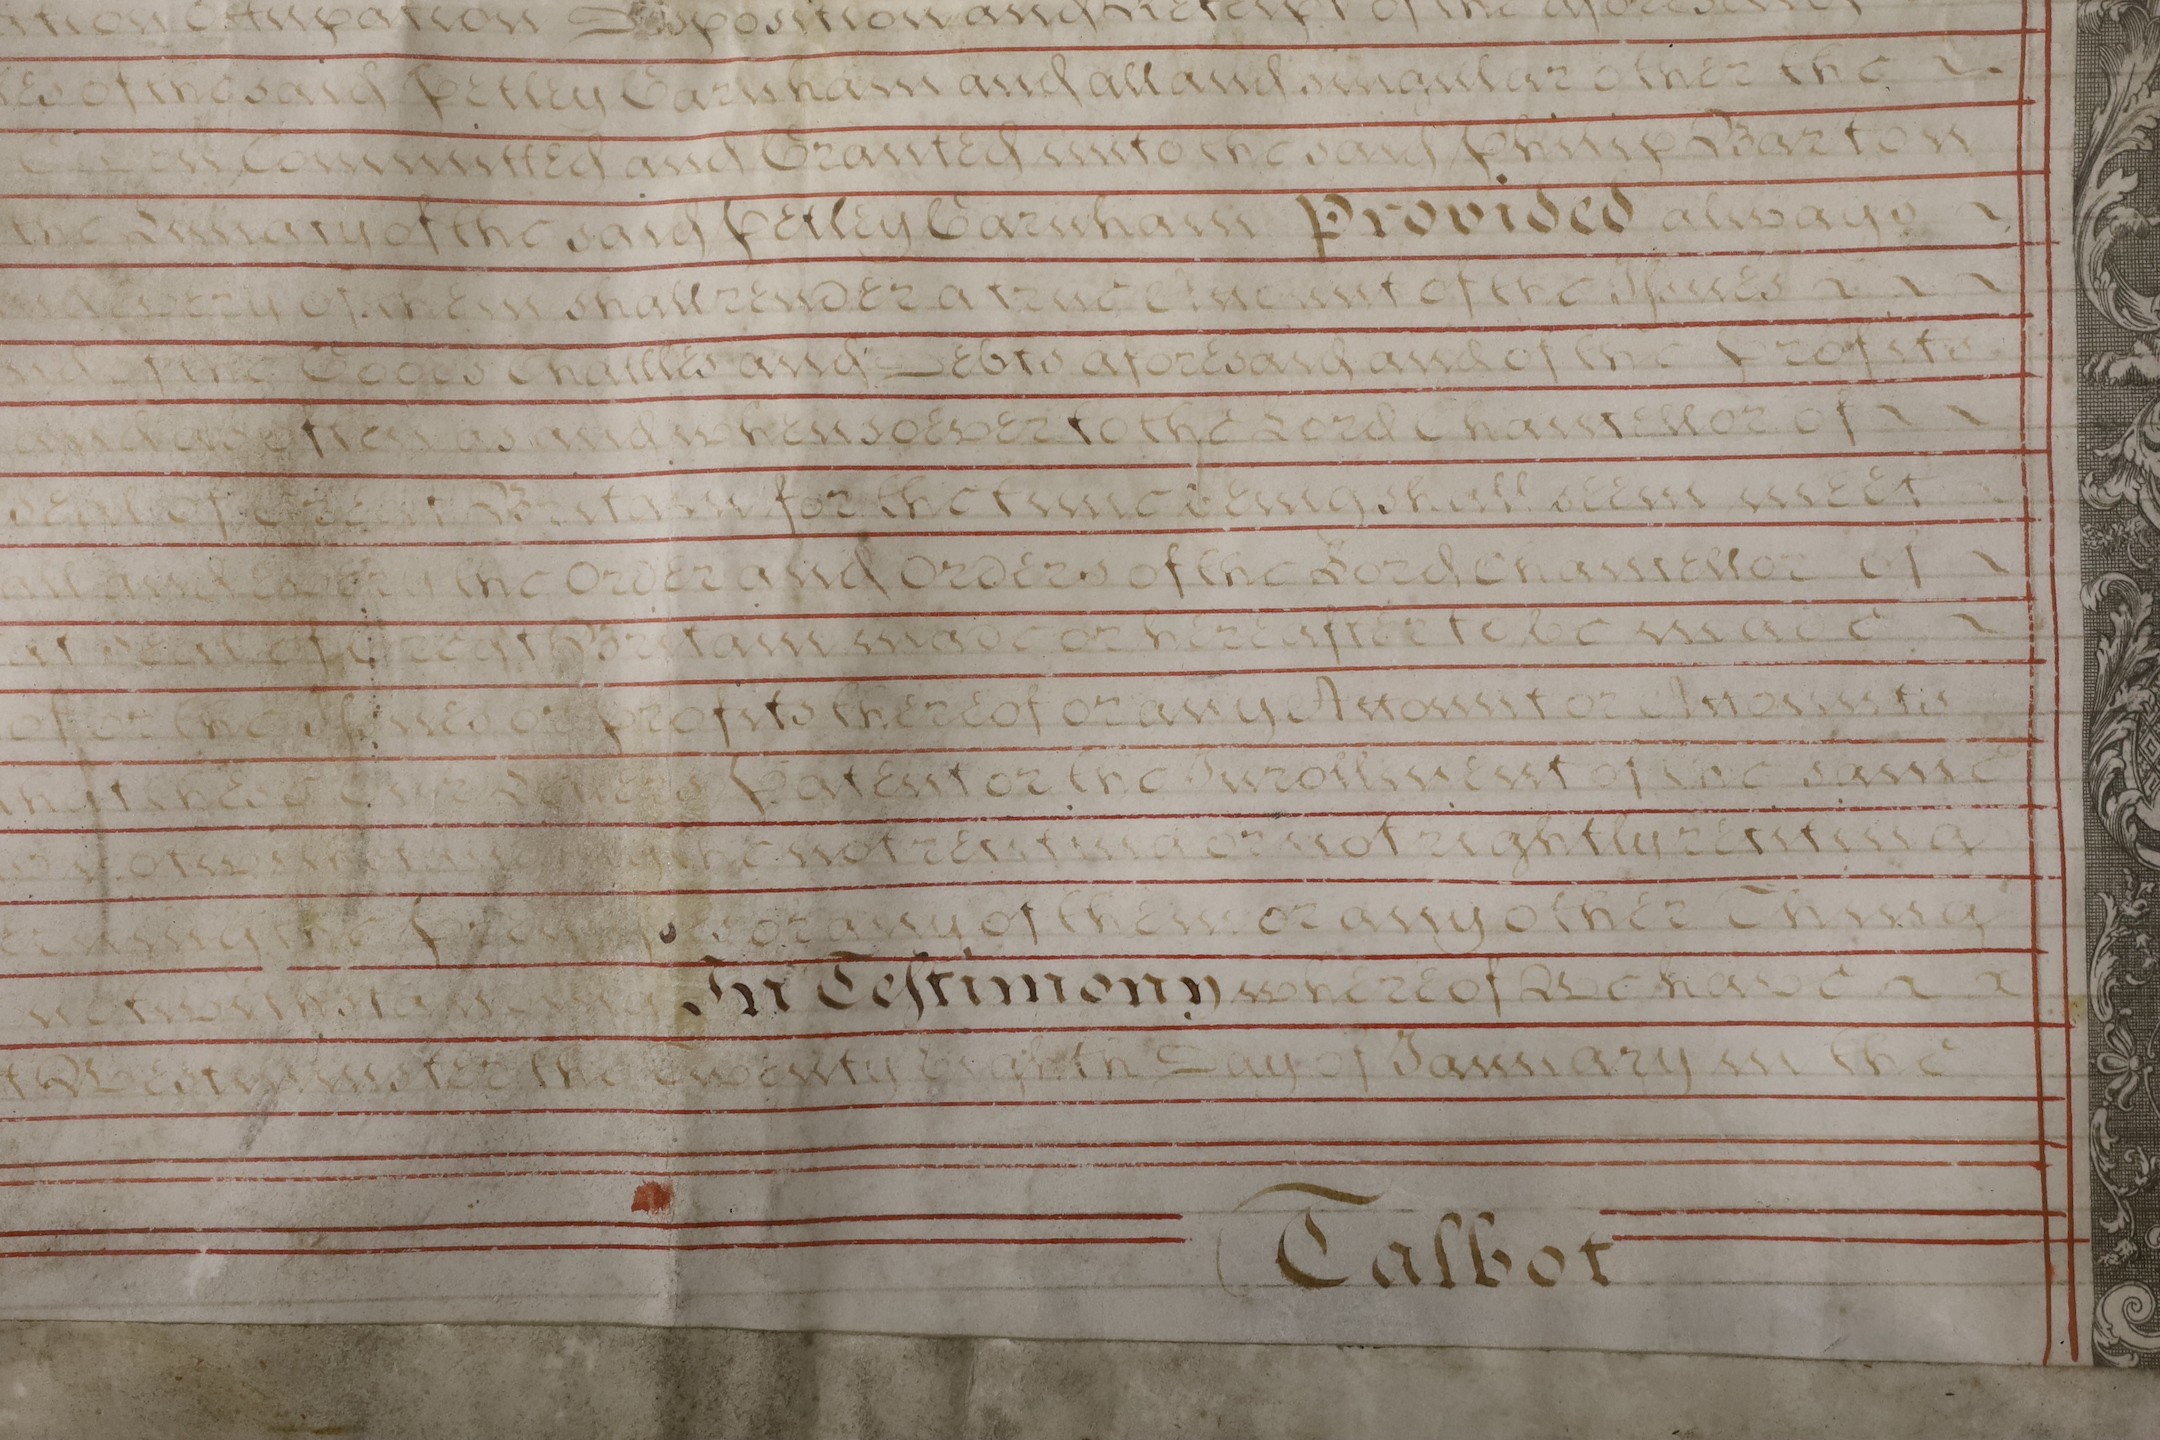 Occupation Disposition and Receipt of the aforesaid
of the said Petley Garnham and all and singular other the
Committed and Granted unto the said Philip Barton
the Lunacy of the said Petley Garnham Provided always
and every of them shall render a true Account of the Issues
and of the Goods Chattles and Debts aforesaid and of the Profits
and as often as and whensoever to the Lord Chancellor of
Seal of Great Britain for the time being shall seem meet
all and every the Order and Orders of the Lord Chancellor of
Seal of Great Britain made or hereafter to be made
of or the Issues or profits thereof or any Account or Accounts
these Our Letters Patent or the Inrollment of the same
notwithstanding the not reciting or not rightly reciting
the Premisses or any of them or any other Thing
notwithstanding In Testimony whereof We have
Westminster the Twenty eighth Day of January in the
Talbot